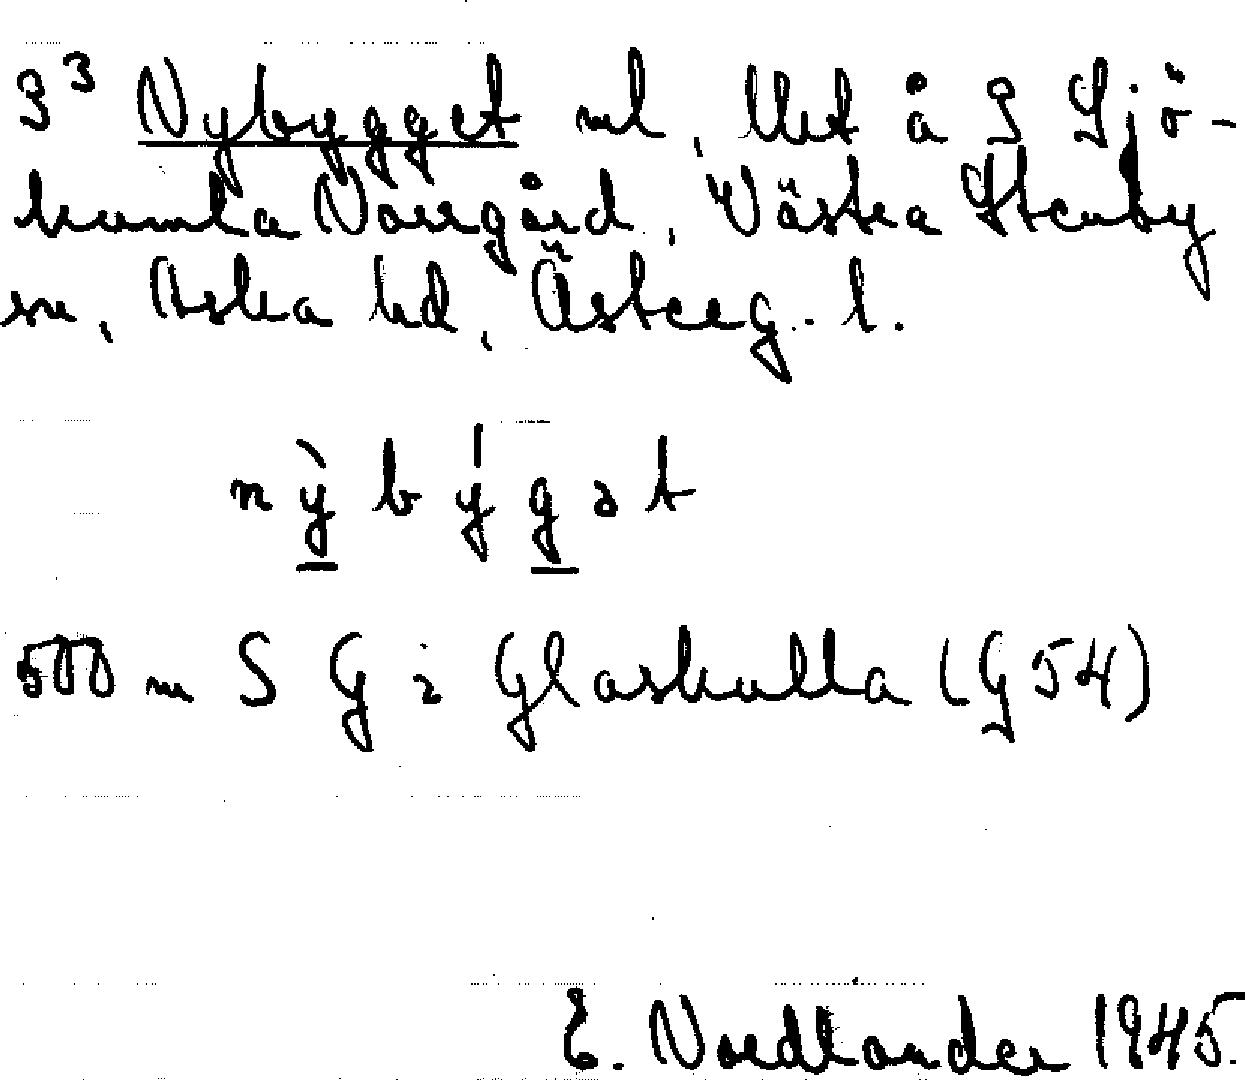 3³ Nybygget ul, Utet å S Sjö-
humla Norrgård, Västra Stenby
sn, Aska hd, Österg. l.
nỳbýgət
500 m S G i Glaskulla (G54)
E. Nordlander 1945.